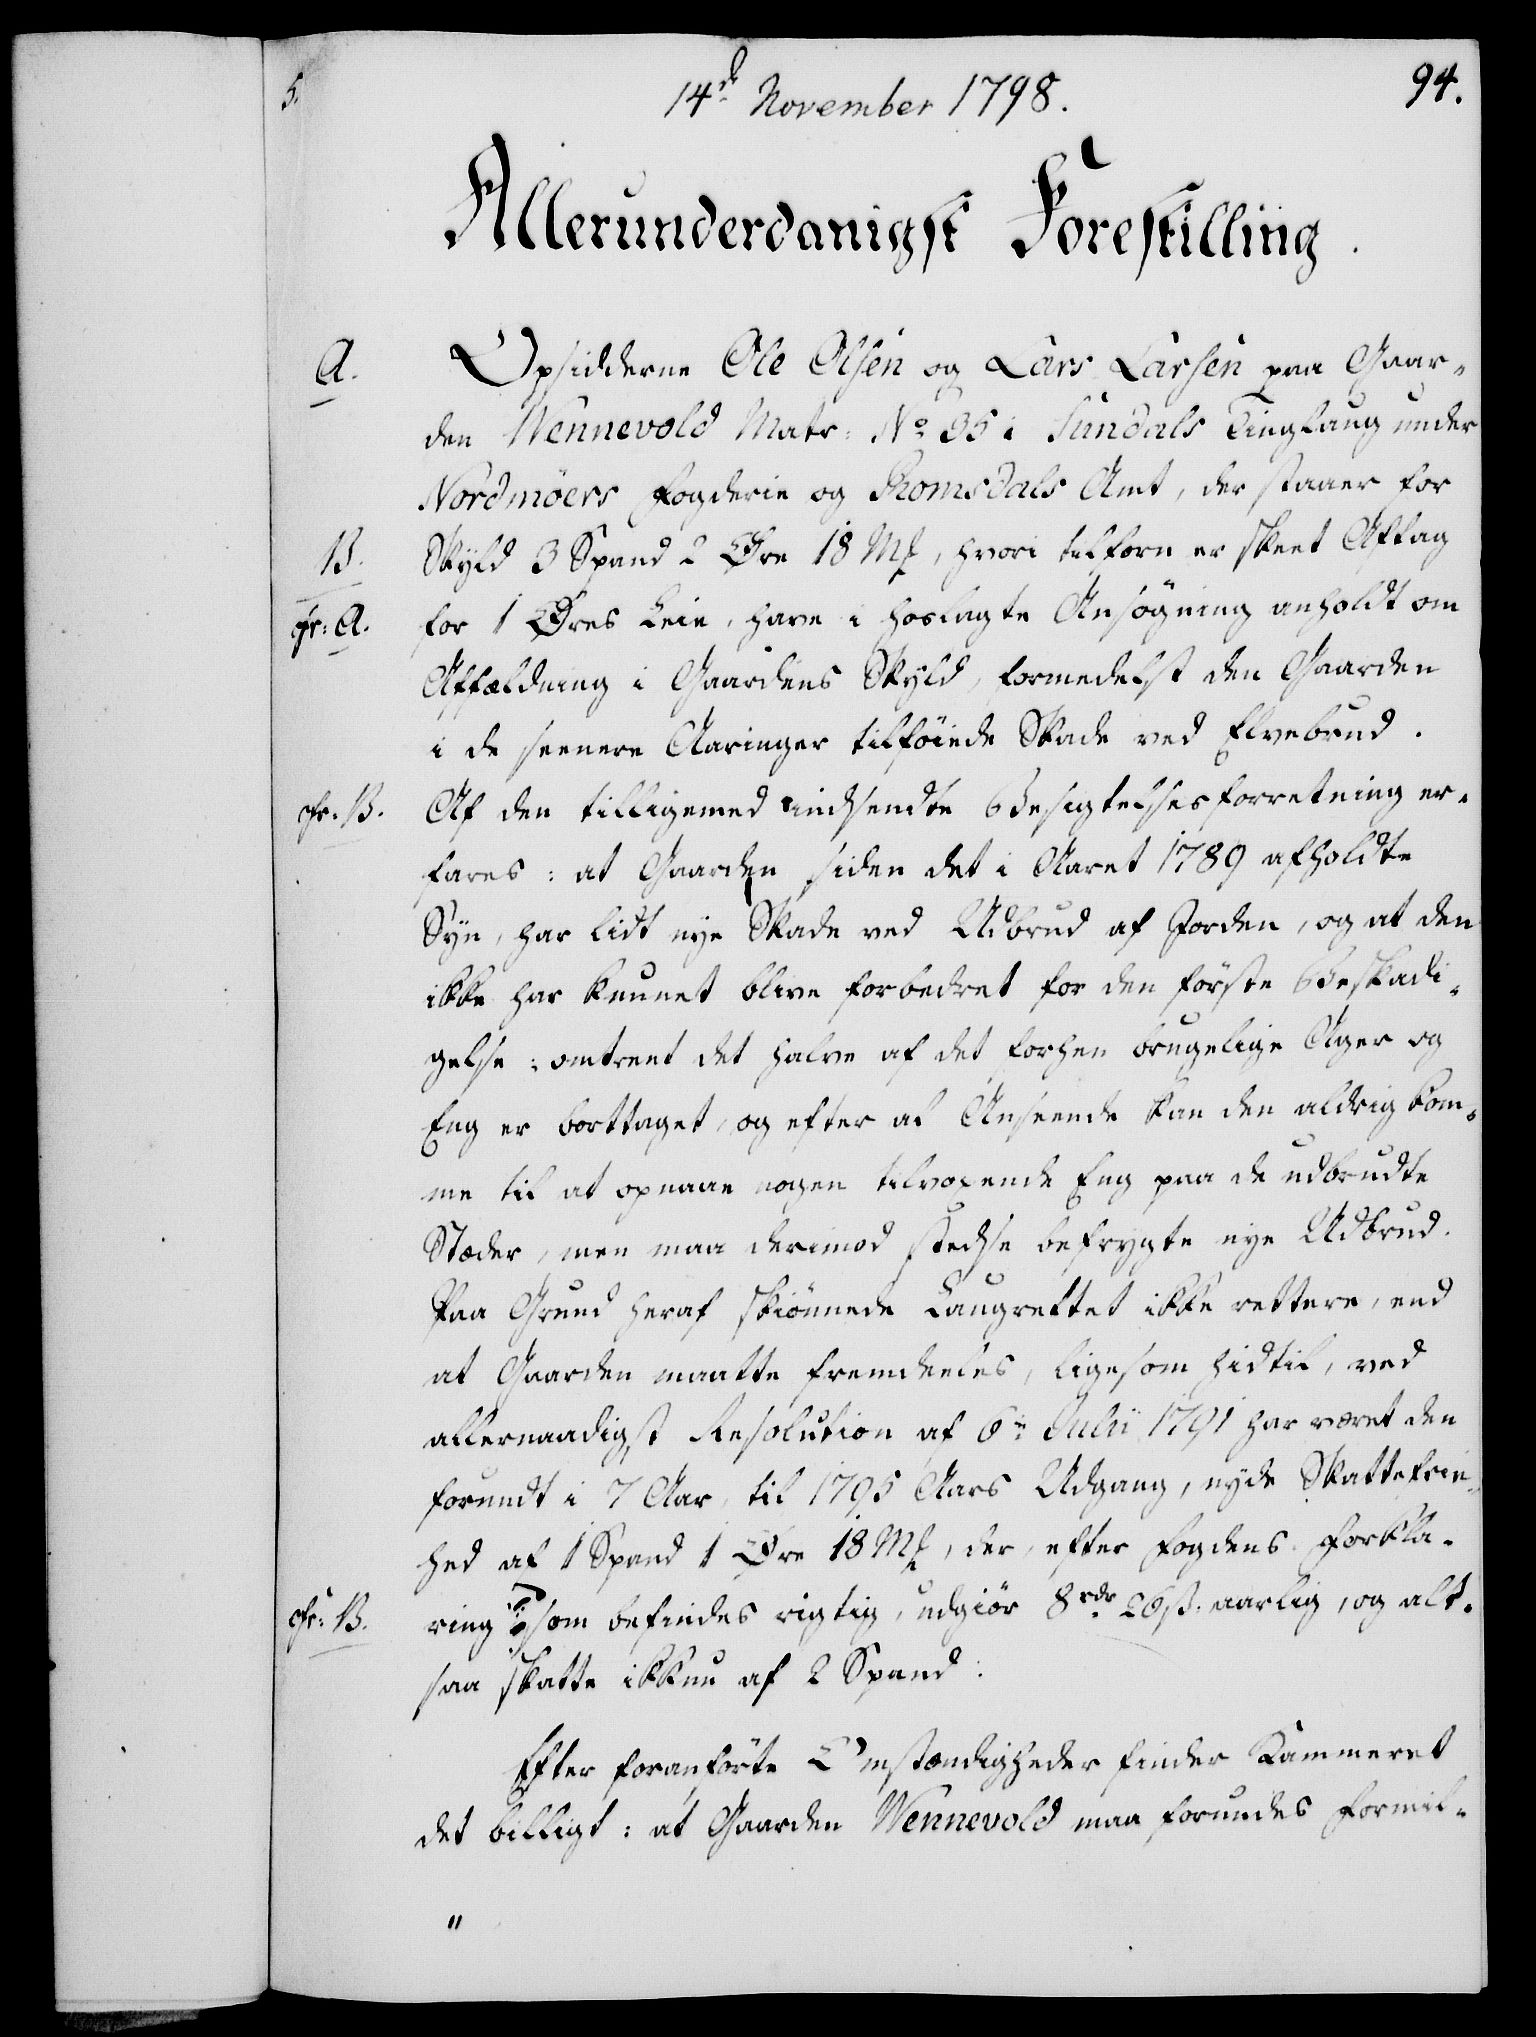 5.
14de November 1798.
94.
Allerunderdanigst Forestilling.
A.
Opsidderne Ole Olsen og Lars Larsen paa Gaar-
den Wennevold Matr: No 35 i Sundals Tinglaug under
Nordmöers Fogderie og Romsdals Amt, der staaer for
B.
Skyld 3 Spand 2 Øre 18 Mk, hvori tilforn er skeet Aftag
cfr: A.
for 1 Øres Leie, have i hoslagte Ansøgning anholdt om
Affældning i Gaardens Skyld, formedelst den Gaarden
i de seenere Aaringer tilföiede Skade ved Elvebrud.
cfr. B.
Af den tilligemed indsendte Besigtelsesforretning er-
fares: at Gaarden siden det i Aaret 1789 afholdte
Syn, har lidt nye Skade ved Udbrud af Jorden, og at den
ikke har kunnet blive forbedret for den förste Beskadi-
gelse: omtrent det halve af det forhen brugelige Ager og
Eng er borttaget, og efter al Anseende kan den aldrig kom-
me til at opnaae nogen tilvoxende Eng paa de udbrudte
Stæder, men maa derimod stedse befrygte nye Udbrud.
Paa Grund heraf skiönnede Laugrettet ikke rettere, end
at Gaarden maatte fremdeeles, ligesom hidtil, ved
allernaadigst Resolution af 6te Julii 1791 har været den
forundt i 7 Aar, til 1795 Aars Udgang, nyde Skattefrie-
hed af 1 Spand 1 Øre 18 Mk, der, efter Fogdens Forkla-
cfr: B.
ring, som befindes rigtig, udgiör 8 rdr 26 ß. aarlig, og alt-
saa skatte ikkun af 2 Spand.
Efter foranförte Omstændigheder finder Kammeret
det billigt: at Gaarden Wennevold maa forundes Formil-
"